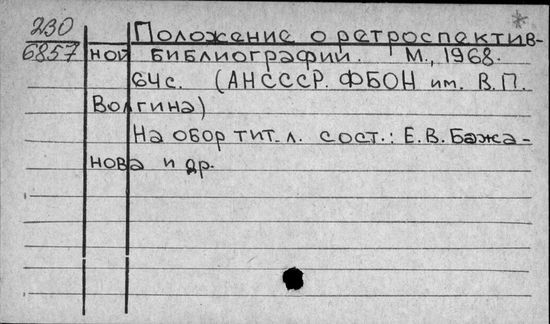 230
6857
Положение о ретроспектив-
ной библиографии. М., 1968.
64с. (АНСССР. ФБОН им. В.П.
Волгина)
На обор тит. л. сост.: Е.В. Бажа-
нова и др.